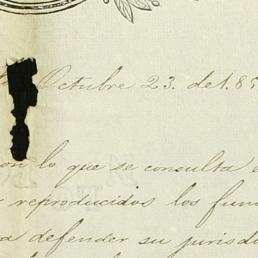 Octubre 23. de 1.85
con lo que se consulta e
reproducidos los fun
a defender su jurisdi